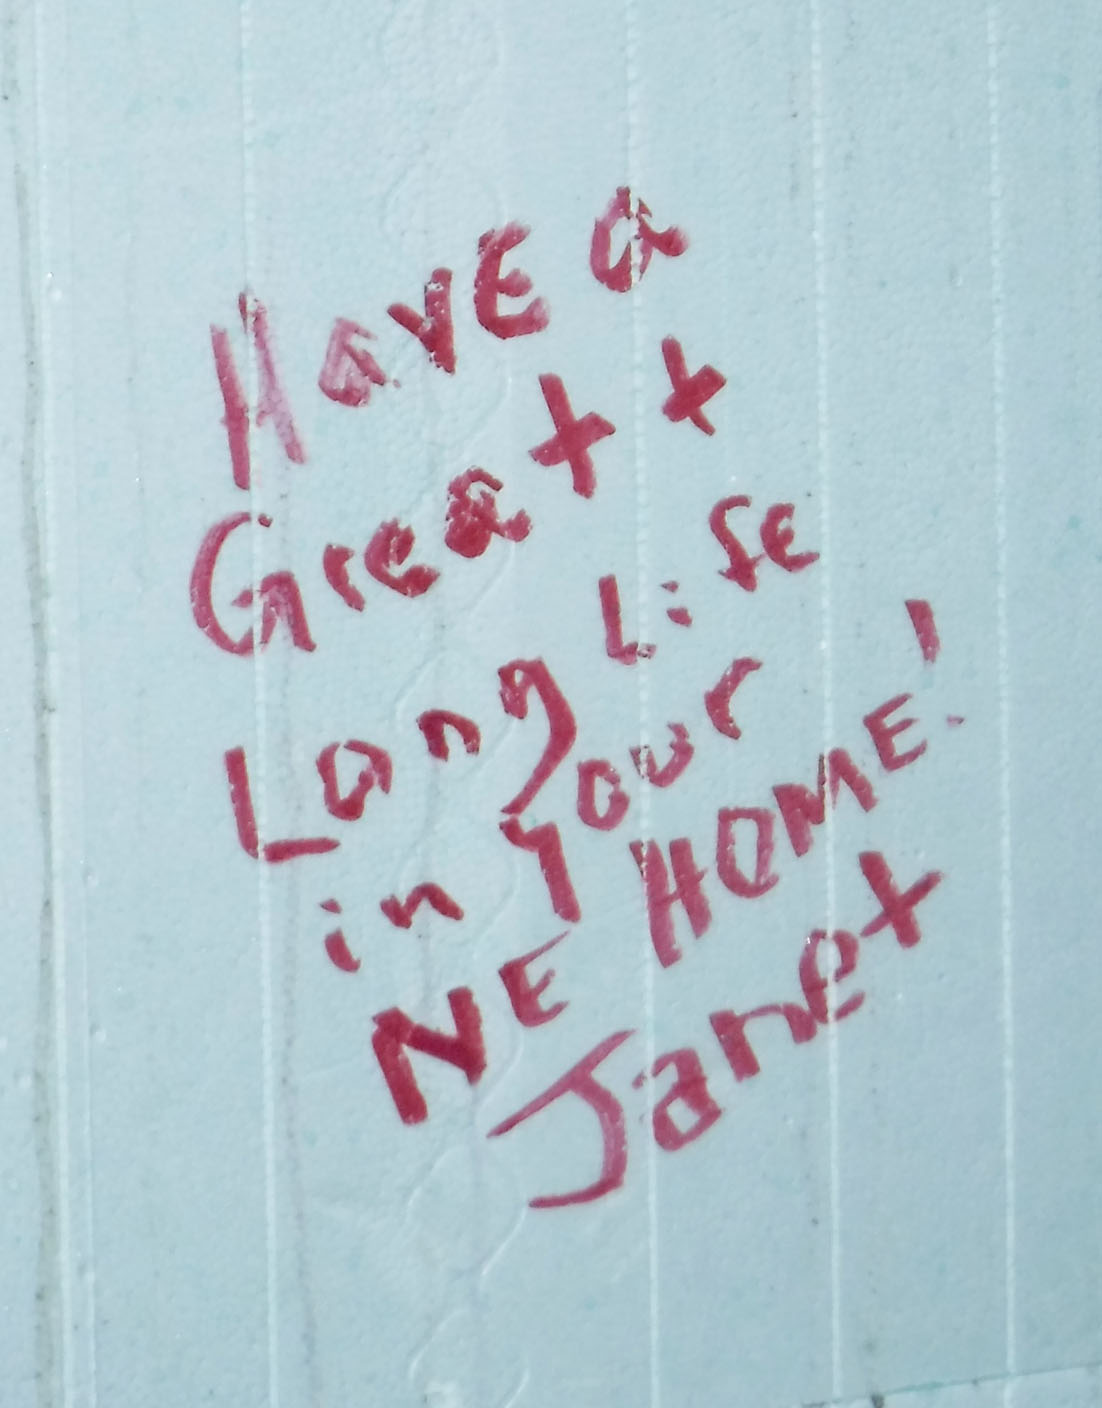 Have a
Great +
Long Life
in your
NE HOME!
Janet